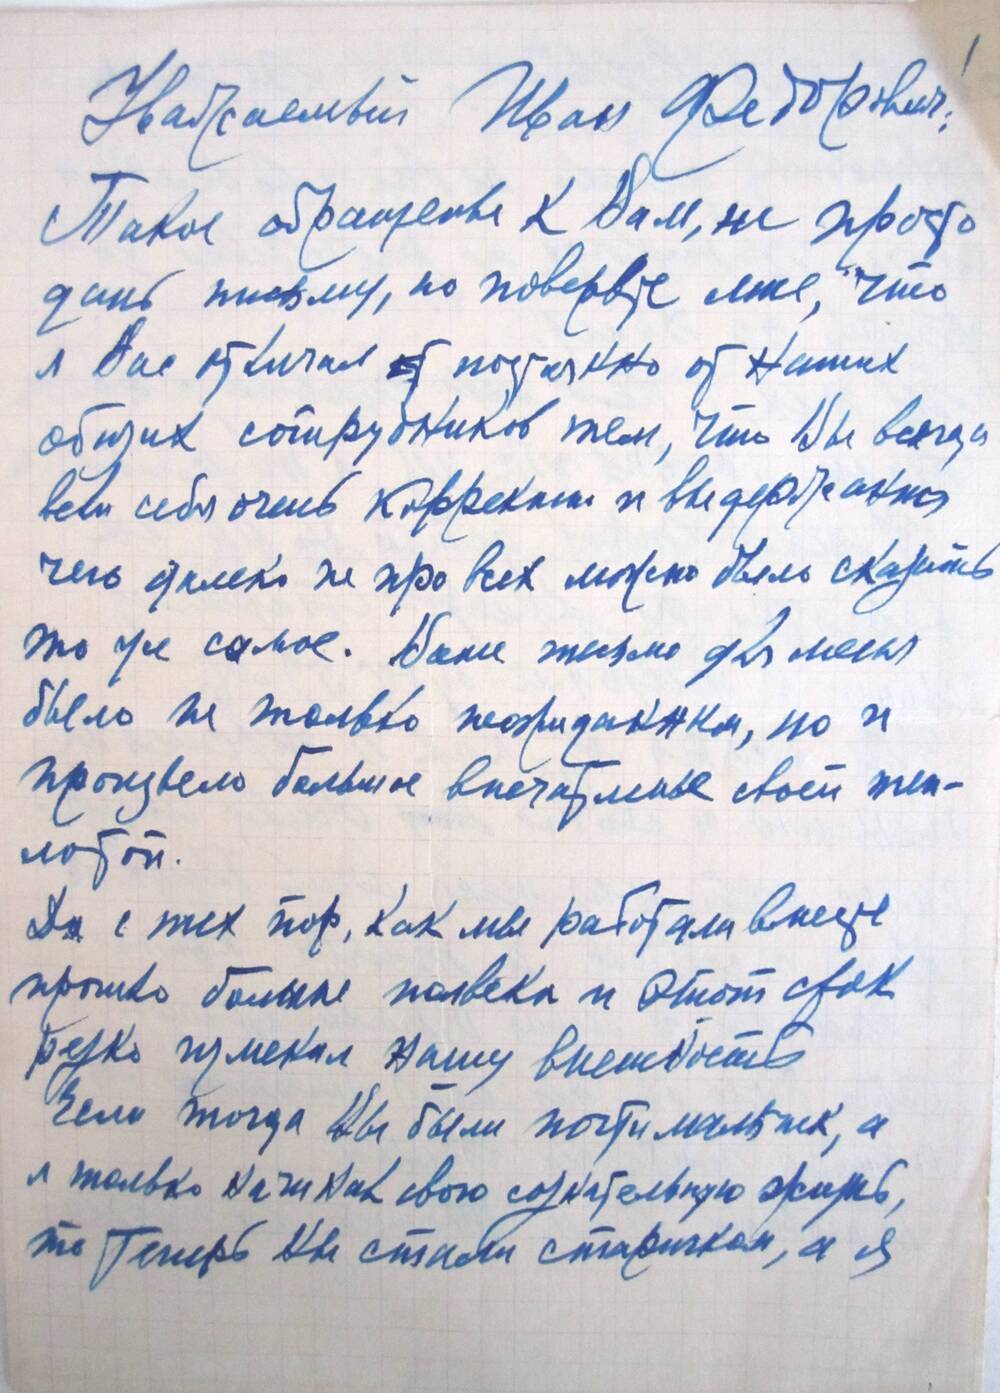 Уважаемый Иван Федорович!
Такое обращение к Вам, не просто
дань письму, но поверьте мне, что
я Вас отличал постоянно от наших
общих сотрудников тем, что Вы всегда
вели себя очень корректно и выдержанно
чего далеко не про всех можно было сказать
то же самое. Ваше письмо для меня
было не только неожиданным, но и
произвело большое впечатление своей теп-
лотой.
Да с тех пор, как мы работали вместе
прошло больше полвека и этот срок
резко изменил нашу внешность
Если тогда Вы были почти мальчик, а
я только начинал свою сознательную жизнь,
то теперь Вы стали старичком, а я